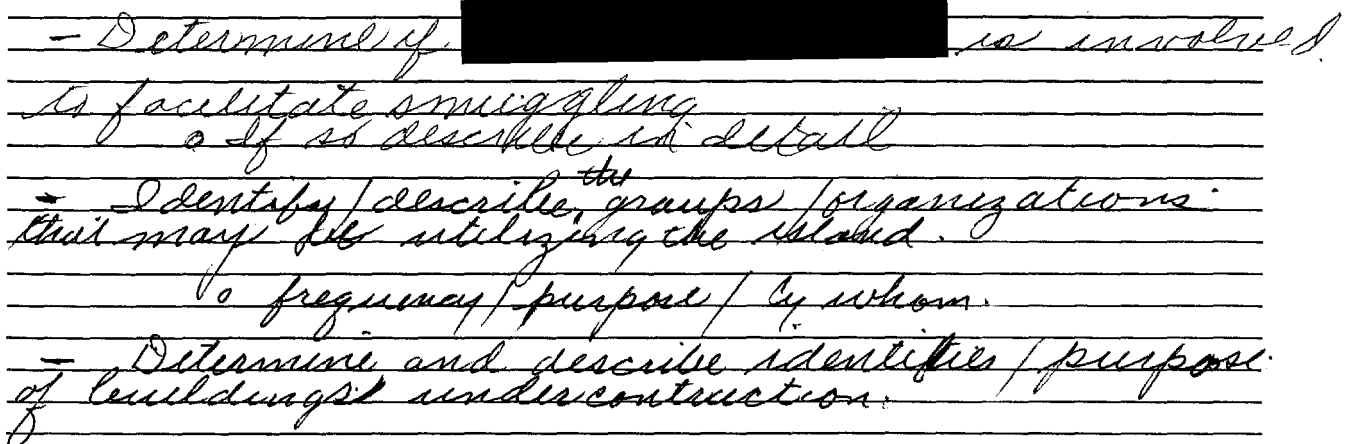 - Determine if is involved
to facilitate smuggling
o If so describe in detail
- Identify/describe the groups/organizations
that may be utilizing the island.
o frequency/purpose/by whom.
- Determine and describe identities/purpose
of buildings undercontruction.